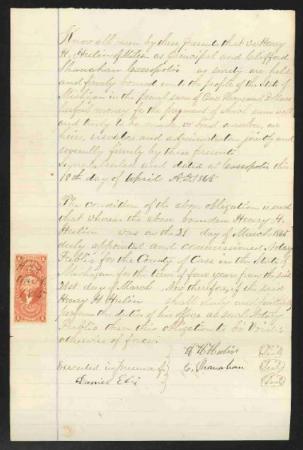 Know all men by these Present that we Henry
H. Heslin of Milton as Principal and Clifford
Shanahan Cassopolis as surety are held
and firmly bound unto the people of the State of
Michigan in the penal sum of One thousand Dollars
lawful money to the payment of which sum well
and truly to be made we bind ourselves, our
heirs, executors and administrators jointly and
severally firmly by these presents
Signed sealed and dated at Cassopolis this
10th day of April A.D. 1868
The condition of the above obligation is such
that whereas the above bounden Henry H.
Heslin was on the 21 day of March 1868
duly appointed and commissioned Notary
Public for the County of Cass in the State of
Michigan for the term of four years from the said
21st day of March Now therefore, if the said
Henry H Heslin shall duly and faithfully
perform the duties of his office as such Notary
Public then this obligation to be void
otherwise of force.
H H Heslin
Executed in presence of C. Shanahan
Daniel